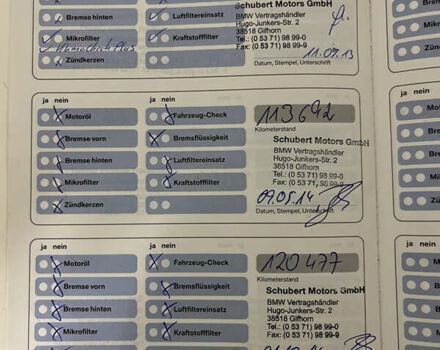 Bremse hinten
Luftfiltereinsatz
Schubert Motors GmbH
BMW Vertragshändler
Hugo-Junkers-Str. 2
38518 Gifhorn
Tel.: (0 53 71) 98 99-0
Fax: (0 53 71) 98 99-
Mikrofilter
Kraftstofffilter
11.09.13
Zündkerzen
Datum, Stempel, Unterschrift
ja nein
ja nein
Motoröl
Fahrzeug-Check
113642
Kilometerstand
Bremse vorn
Bremsflüssigkeit
Schubert Motors GmbH
BMW Vertragshändler
Hugo-Junkers-Str. 2
38518 Gifhorn
Tel.: (0 53 71) 98 99-0
Fax: (0 53 71) 98 99-
Bremse hinten
Luftfiltereinsatz
Mikrofilter
Kraftstofffilter
09.05.14
Zündkerzen
Datum, Stempel, Unterschrift
ja nein
ja nein
Motoröl
Fahrzeug-Check
120477
Kilometerstand
Bremse vorn
Bremsflüssigkeit
Schubert Motors GmbH
BMW Vertragshändler
Hugo-Junkers-Str. 2
38518 Gifhorn
Tel.: (0 53 71) 98 99-0
Fax: (0 53 71) 98 99-
Bremse hinten
Luftfiltereinsatz
Mikrofilter
Kraftstofffilter
ja
ja